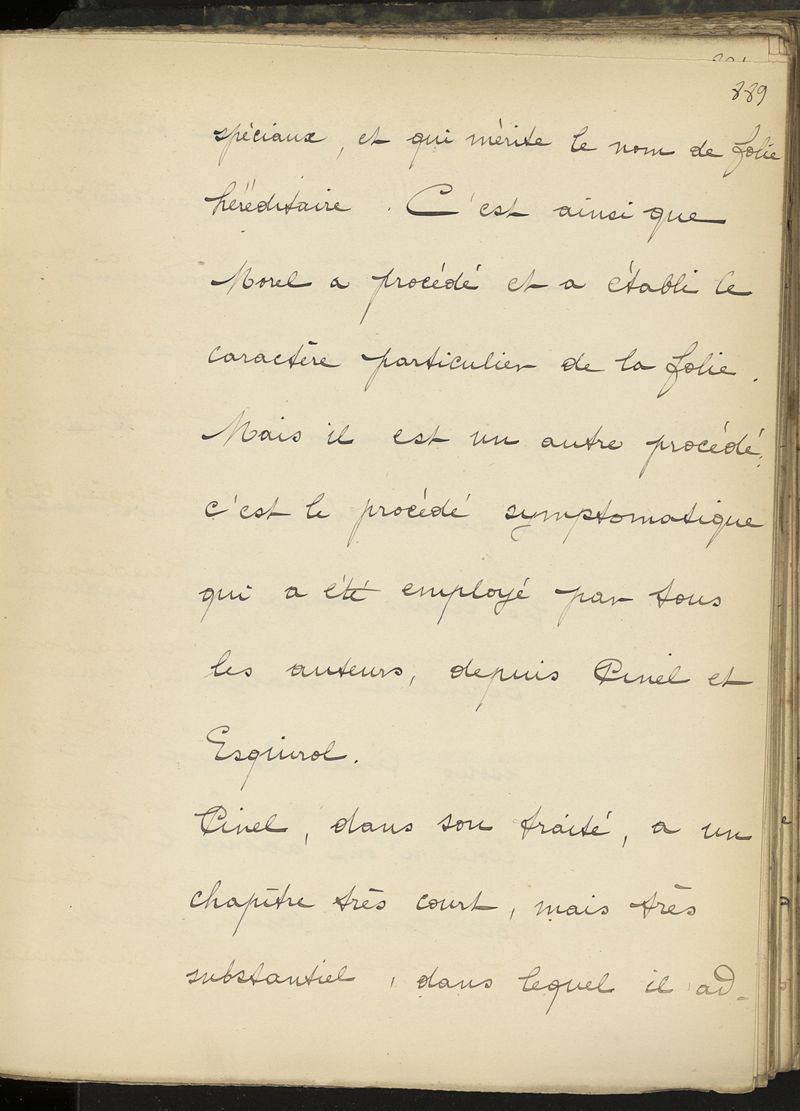 889
spéciaux, et qui mérite le nom de folie
héréditaire. C'est ainsi que
Morel a procédé et a établi le
caractère particulier de la folie.
Mais il est un autre procédé,
c'est le procédé symptomatique
qui a été employé par tous
les auteurs, depuis Pinel et
Esquirol.
Pinel, dans son traité, a un
chapître très court, mais très
substantiel, dans lequel il ad-